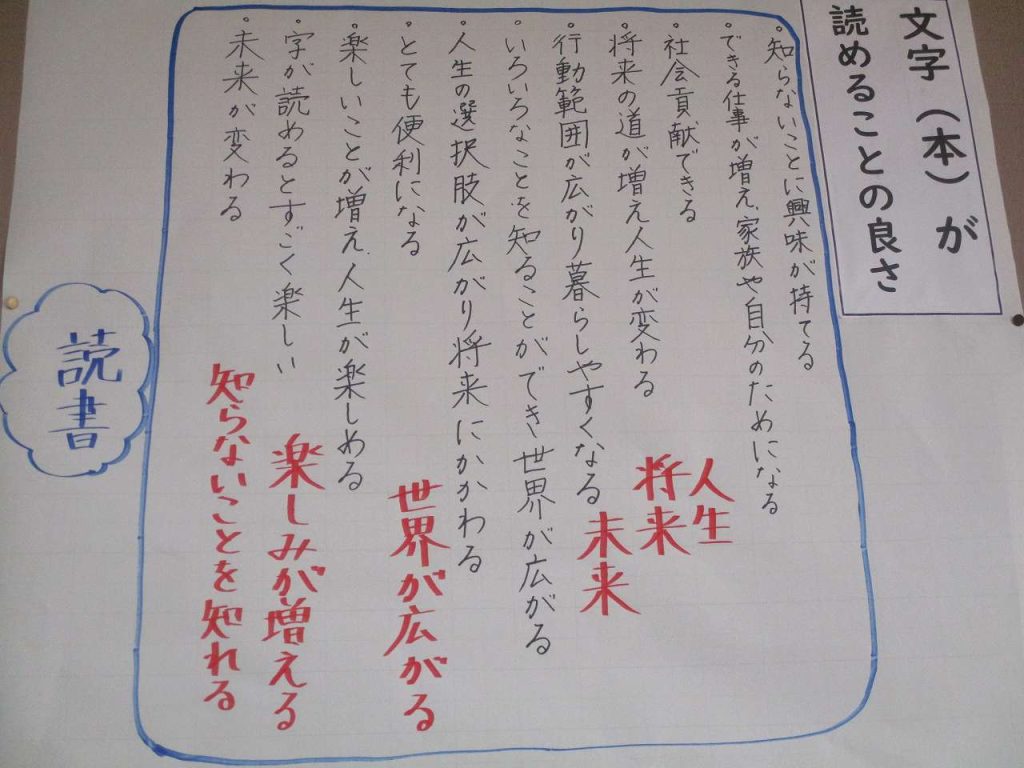 文字（本）が
読めることの良さ
・知らないことに興味が持てる
・できる仕事が増え、家族や自分のためになる
・社会貢献できる
・将来の道が増え人生が変わる
・行動範囲が広がり暮らしやすくなる
・いろいろなことを知ることができ世界が広がる
・人生の選択肢が広がり将来にかかわる
・とても便利になる
・楽しいことが増え、人生が楽しめる
・字が読めるとすごく楽しい
・未来が変わる
人生
将来
未来
世界が広がる
楽しみが増える
知らないことを知れる
読書